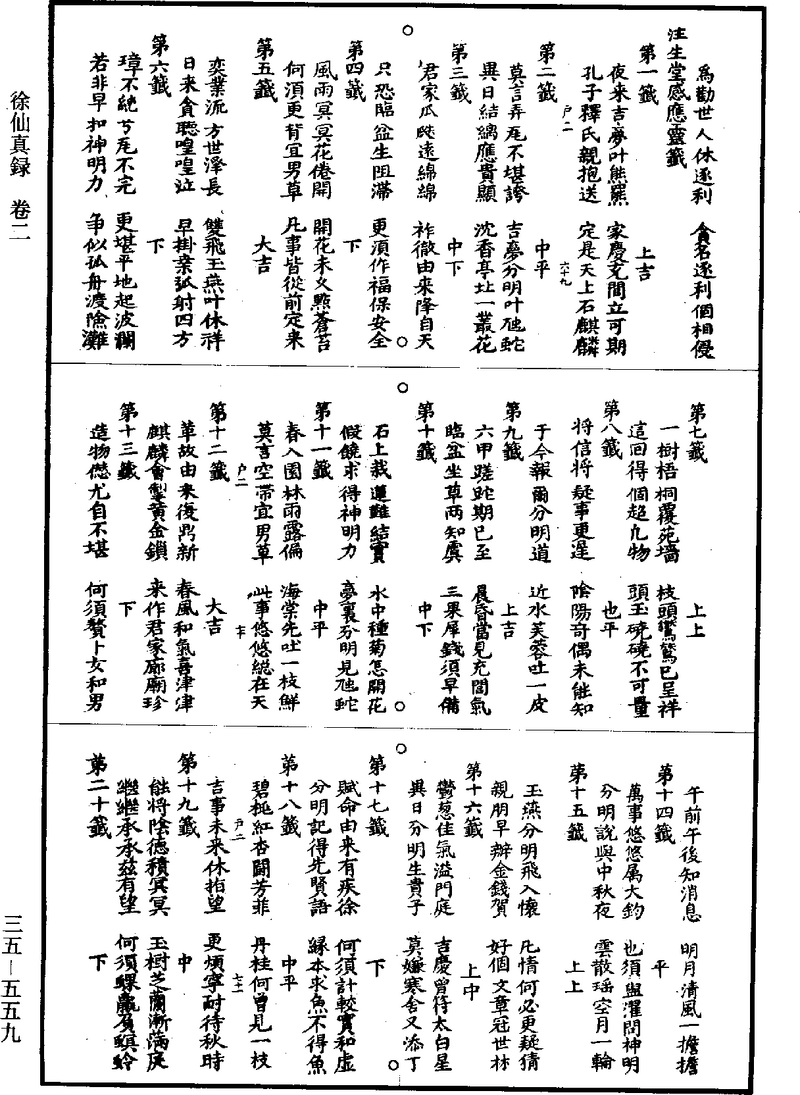 徐仙真録 卷二
三五-五五九
爲勸世人休逐利 貪名逐利個相侵
注生堂感應靈籤
第一籤 上吉
夜來吉夢叶熊羆 家慶充閭立可期
孔子釋氏親抱送 定是天上石麒麟
第二籤 中平
莫言弄瓦不堪誇 吉夢分明叶虺蛇
異日結縭應貴顯 沈香亭北一叢花
第三籤 中下
君家瓜瓞遠綿綿 祚徹由來降自天
只恐臨盆生阻滯 更須作福保安全
第四籤 下
風雨冥冥花倦開 開花未久點蒼苔
何須更背宜男草 凡事皆從前定來
第五籤 大吉
奕葉流方世澤長 雙飛玉燕叶休祥
日來貪聽喤喤泣 早掛桒弧射四方
第六籤 下
璋不繞兮瓦不完 更堪平地起波瀾
若非早扣神明力 争似孤舟渡險灘
第七籤 上上
一樹梧桐覆苑墻 枝頭鸑鷟已呈祥
這回得個超凡物 頭玉磽磽不可量
第八籤 也平
將信將疑事更遲 陰陽奇偶未能知
于今報爾分明道 近水芙蓉吐一皮
第九籤 上吉
六甲蹉跎期已至 晨昏當見充閭氣
臨盆坐草兩知虞 三果犀錢須早備
第十籤 中下
石上栽蓮難結實 水中種菊怎開花
假饒求得神明力 夢裏分明見虺蛇
第十一籤 中平
春入園林雨露偏 海棠先吐一枝鮮
莫言空帶宜男草 此事悠悠總在天
第十二籤 大吉
革故由來復鼎新 春風和氣喜津津
麒麟會掣黃金鎖 來作君家廊廟珍
第十三籤 下
造物愆尤自不堪 何須贅卜女和男
午前午後知消息 明月清風一擔擔
第十四籤 平
萬事悠悠属大鈞 也須盥濯問神明
分明說與中秋夜 雲散瑶空月一輪
第十五籤 上上
玉燕分明飛入懷 凡情何必更疑猜
親朋早辦金錢賀 好個文章冠世林
第十六籤 上中
鬱葱佳氣溢門庭 吉慶曾符太白星
異日分明生貴子 莫嫌寒舍又添丁
第十七籤 下
賦命由來有疾徐 何須計較實和虛
分明記得先賢語 緣木求魚不得魚
第十八籤 中平
碧桃紅杏鬪芳菲 丹桂何曾見一枝
吉事未來休指望 更煩寧耐待秋時
第十九籤 中
能將陰德積冥冥 玉樹芝蘭漸滿庭
繼繼承承兹有望 何須蜾蠃負螟蛉
第二十籤 下